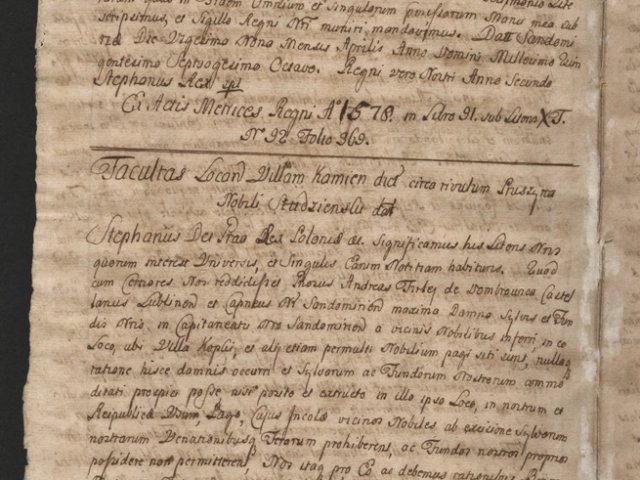 in Fidem Omnium et Singulorum praemissorum Manu mea sub
scripsimus, et Sigillo Regni Nri muniri mandavimus. Datt Sandomi
riae Die Vigesima Nona Mensis Aprilis Anno Domini Millesimo Quin
gentesimo Septuagesimo Octavo. Regni vero Nostri Anno Secundo
Stephanus Rex
Ex Actis Metrices Regni Ao 1578. in Libro 91. sub Litera XT.
No 92 Folio 369.
Facultas Locand Villam Kamien dict circa rivulum Pruszyna
Nobili Studzienski dat
Stephanus Dei Gratia Rex Poloniae &c. Significamus his Literis Nris
quorum interest Universis, et Singulis Earum Notitiam habituris. Quod
cum Certiores Nos reddidisset Andreas Firley de Dombrowica Castel
lanus Lublinen et Capneus Nr Sandomirien maxima Damna Sylvis et Fun
dis Nris, in Capitaneatu Nro Sandomirien a vicinis Nobilibus inferri in eo
Loco, ubi Villa Koplin, et alij etiam permulti Nobilium pagi siti sunt, nullaq
ratione hisce damnis occurri et Sylvarum ac Fundorum Nostrorum commo
ditati prospici posse nisi posito et extructo in illo ipso Loco, in nostrum et
Reipublicae Usum, Pago, Cujus Incolae vicinos Nobiles ab excisione Sylvarum
nostrarum Venationibusq Ferarum prohiberent, ac Fundos nostros proprios
possidere non permitterent, Nos itaq pro Eo ac debemus rationibus